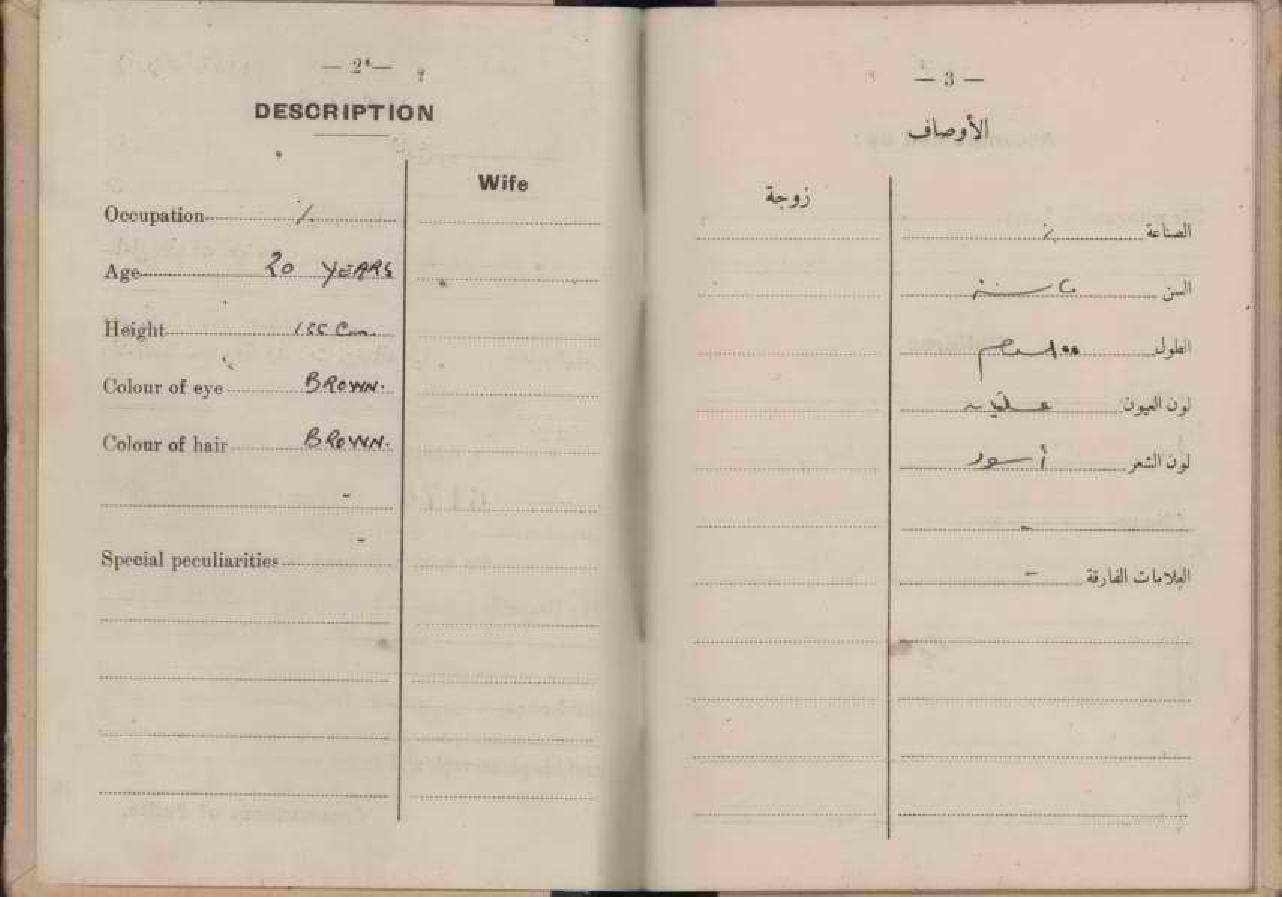 — 2 —
DESCRIPTION
Wife
Occupation
Age 20 YEARS
Height 155 Cm.
Colour of eye BROWN.
Colour of hair BROWN.
-
Special peculiarities -
— 3 —
الأوصاف
زوجة
الصناعة
السن سنة
الطول ١٥٥ سم
لون العيون عسلية
لون الشعر أسود
-
العلامات الفارقة -